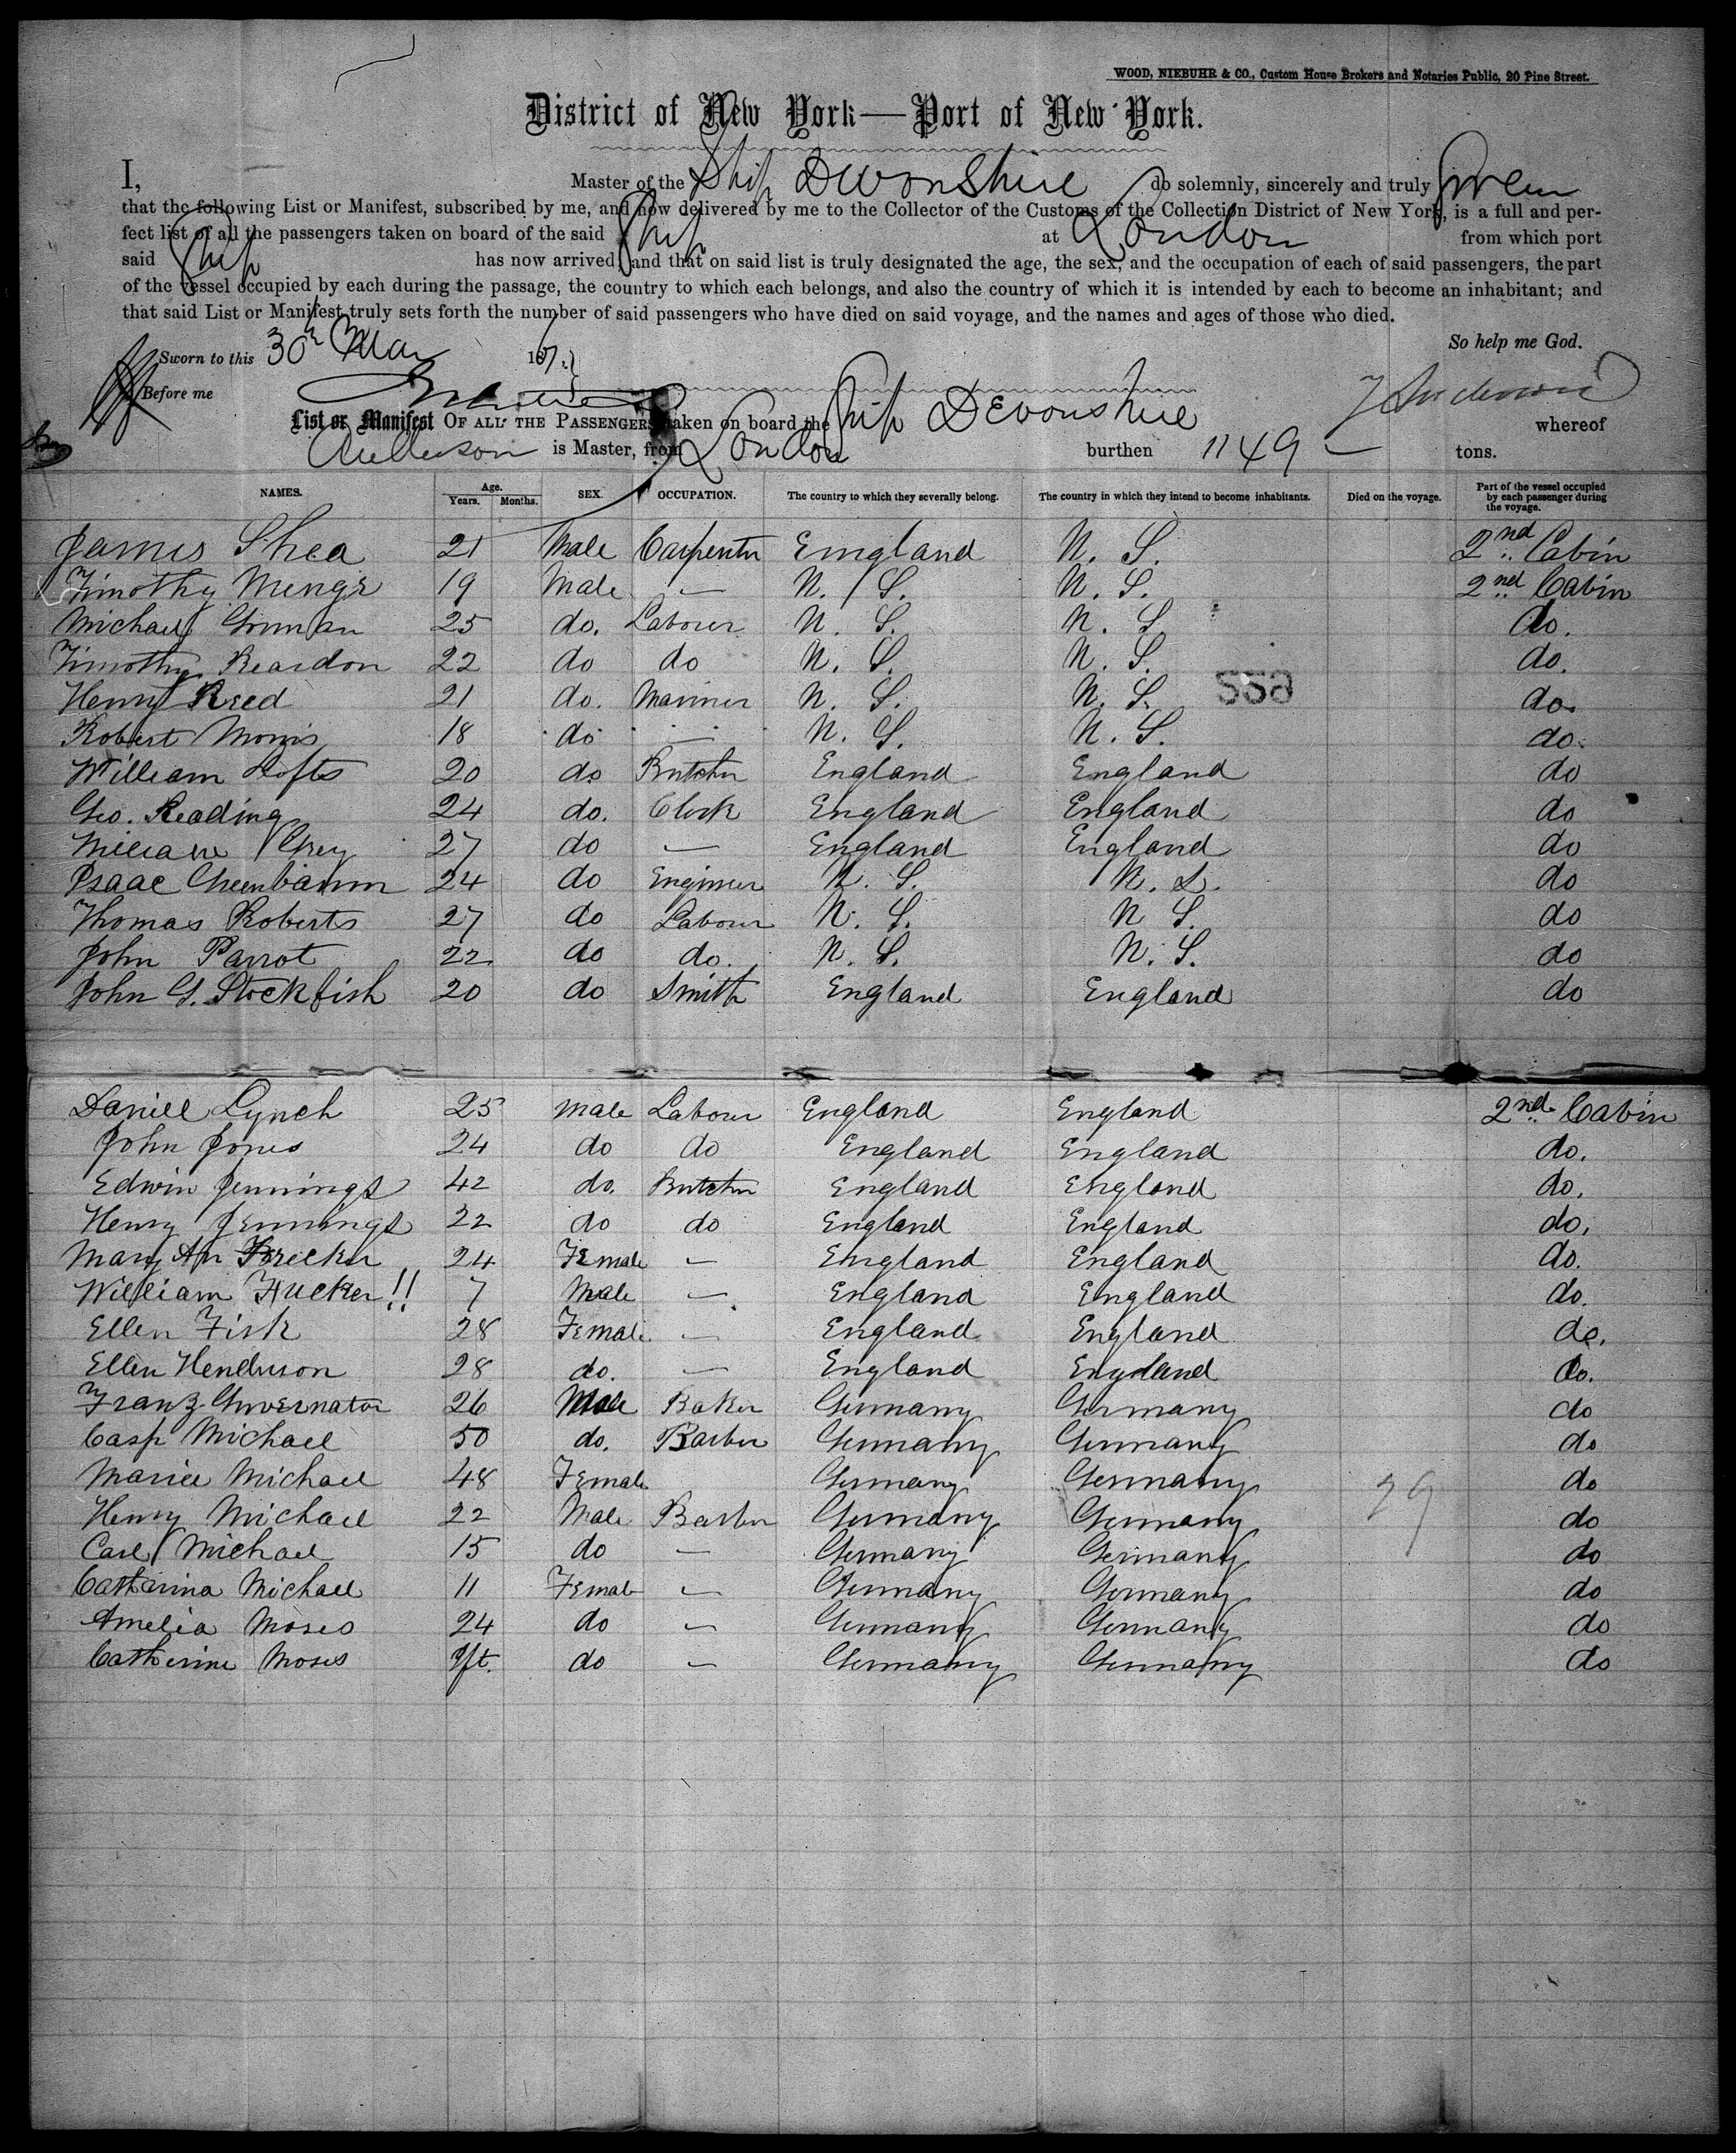 WOOD, NIEBUHR & CO., Custom House Brokers and Notaries Public, 20 Pine Street.
District of New York—Port of New York.
I, Master of the Ship Devonshire do solemnly, sincerely and truly
that the following List or Manifest, subscribed by me, and now delivered by me to the Collector of the Customs of the Collection District of New York, is a full and per-
fect list of all the passengers taken on board of the said Ship at London from which port
said Ship has now arrived; and that on said list is truly designated the age, the sex, and the occupation of each of said passengers, the part
of the vessel occupied by each during the passage, the country to which each belongs, and also the country of which it is intended by each to become an inhabitant; and
that said List or Manifest truly sets forth the number of said passengers who have died on said voyage, and the names and ages of those who died.
So help me God.
Sworn to this 30th
Before me
List or Manifest OF ALL THE PASSENGERS taken on board the Ship Devonshire whereof
is Master, from London burthen 1149 tons.
NAMES. Age. Years. Months. SEX. OCCUPATION. The country to which they severally belong. The country in which they intend to become inhabitants. Died on the voyage. Part of the vessel occupied by each passenger during the voyage.
James Shea 21 Male Carpenter England N. S. 2nd Cabin
Timothy 19 Male — N. S. N. S. 2nd Cabin
Michael Gorman 25 do. Labourer N. S. N. S. do.
Timothy Reardon 22 do do N. S. N. S. do.
Henry Reed 21 do. Mariner N. S. N. S. do.
559
Robert Morris 18 do — N. S. N. S. do.
William Lofts 20 do Butcher England England do
Geo. Reading 24 do. Clerk England England do
William Grey 27 do — England England do
Isaac Greenbaum 24 do Engineer N. S. N. S. do
Thomas Roberts 27 do Labourer N. S. N. S. do
John Parrot 22 do do. N. S. N. S. do
John G. Stockfish 20 do Smith England England do
Daniel Lynch 25 Male Labourer England England 2nd Cabin
John Jones 24 do do England England do.
Edwin Jennings 42 do. Butcher England England do.
Henry Jennings 22 do do England England do.
Mary An 24 Female — England England do.
William 7 Male — England England do.
Ellen Fisk 28 Female — England England do.
Ellen Henderson 28 do. — England England do.
Franz Governator 26 Male Baker Germany Germany do
Casp Michael 50 do. Barber Germany Germany do
Mariea Michael 48 Female Germany Germany do
Henry Michael 22 Male Barber Germany Germany do
Carl Michael 15 do — Germany Germany do
Catharina Michael 11 Female — Germany Germany do
Amelia Moses 24 do — Germany Germany do
Catherine Moses do — Germany Germany do